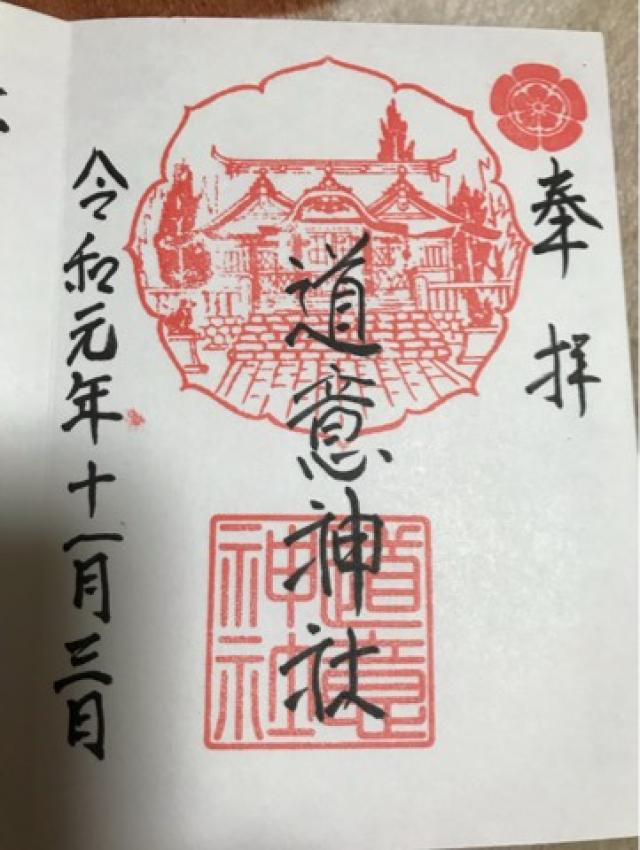 奉拝
道意神社
道意神社
令和元年十一月三日